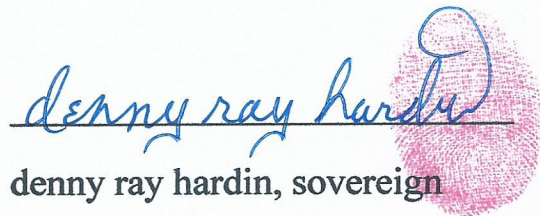 denny ray hardin
denny ray hardin, sovereign